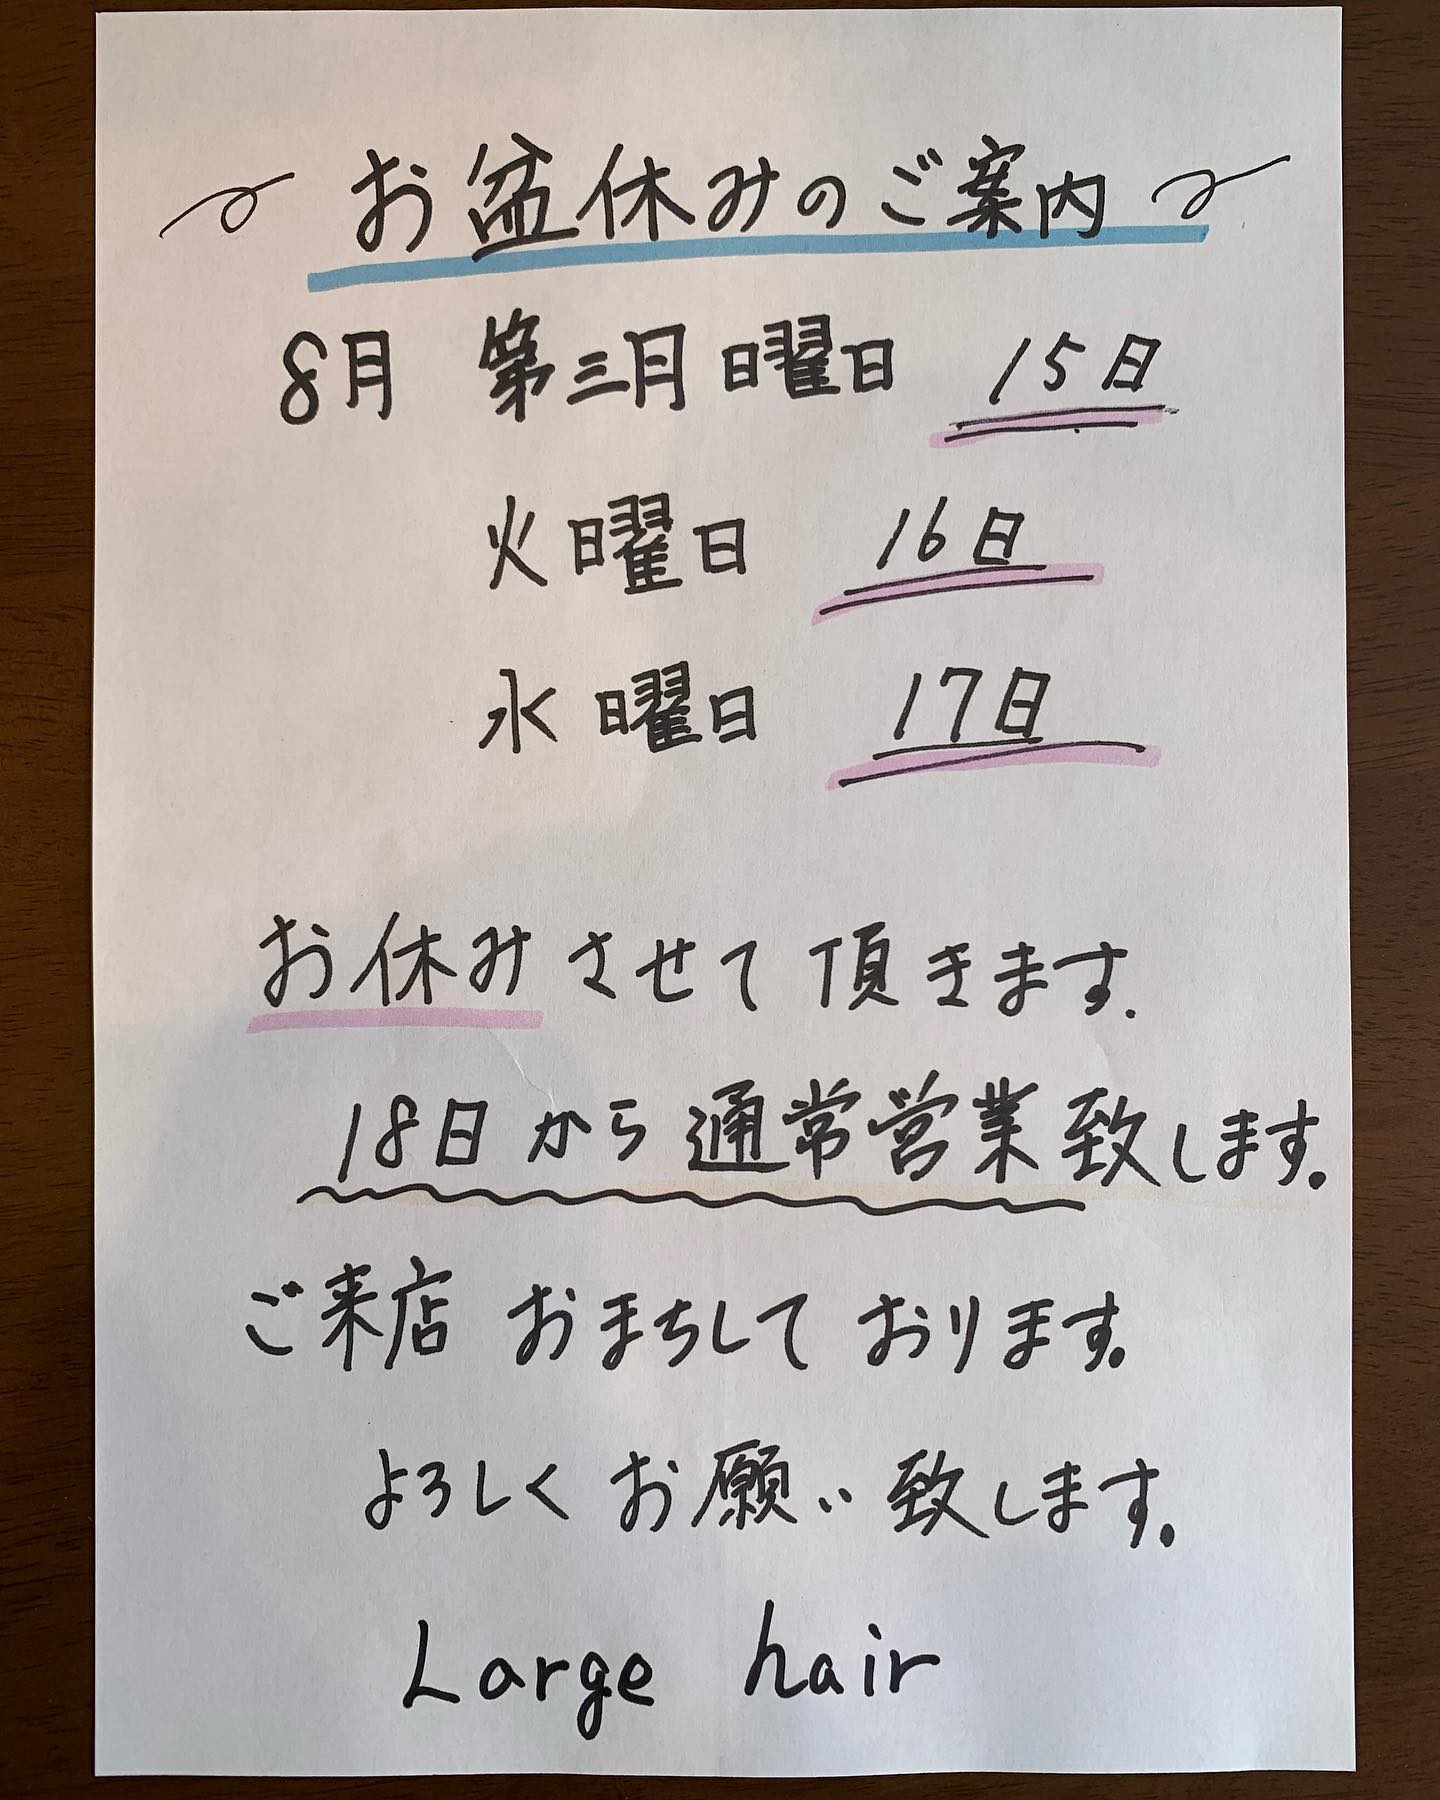 お盆休みのご案内
8月 第三月曜日 15日
火曜日 16日
水曜日 17日
お休みさせて頂きます.
18日から通常営業致します。
ご来店おまちしております。
よろしくお願い致します。
Large hair